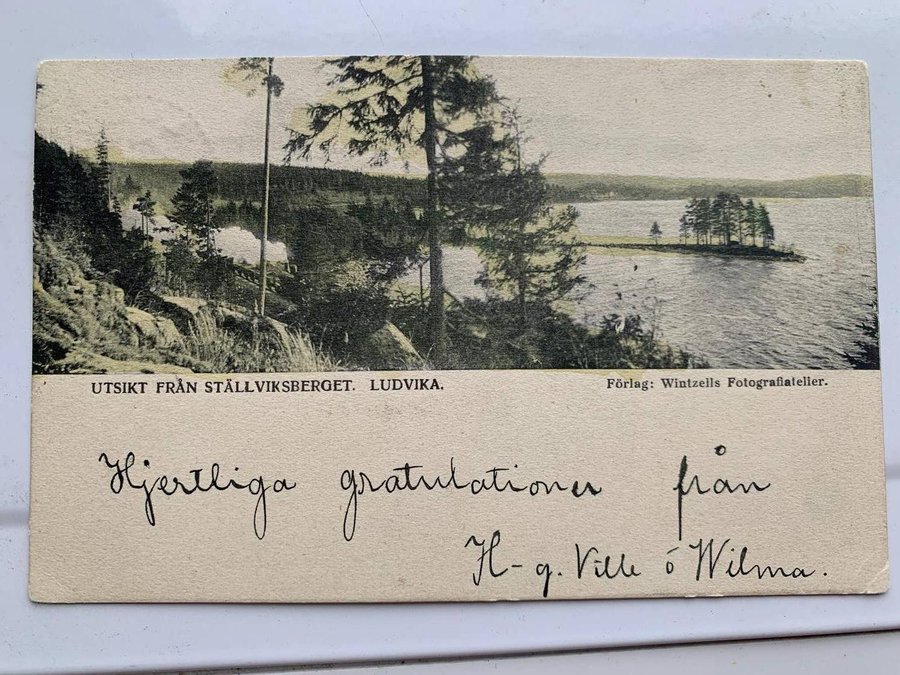 UTSIKT FRÅN STÄLLVIKSBERGET. LUDVIKA.
Förlag: Wintzells Fotografiatelier.
Hjertliga gratulationer från
H-g. Ville ó Wilma.